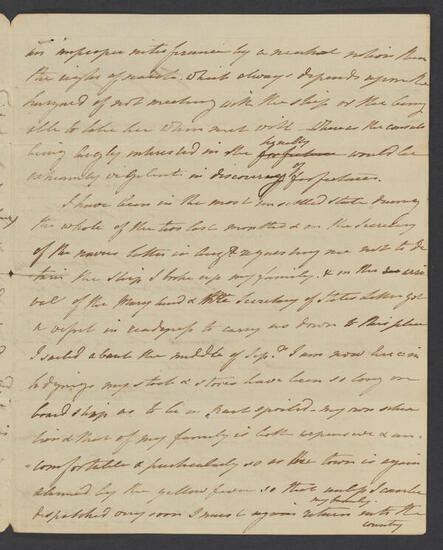 an improper interference by a neutral nation than
the right of search. which always depends upon the
hazard of not meeting with the ship or the being
able to take her when met with. Whereas the consuls
being largely interested in the for future would be
legally
extremely vigilant in discovering of forfeitures.
I have been in the most unsettled state during
the whole of the two last months & on the Secretary
of the navies letter in Augt requesting me not to de
tain the ship I broke up my family. & on the arri
val of the Maryland & the Secretary of States letter got
a vessel in readyness to carry us down to this place
I sailed about the middle of Sepr. I am now here in
lodgings my stock & stores have been so long on
board ship as to be in part spoiled. my own situa
tion & that of my family is both expensive & un
comfortable & particularly so as the town is again
alarmed by the yellow fever so that unless I can be
my family.
dispatched very soon I must again return into the
country